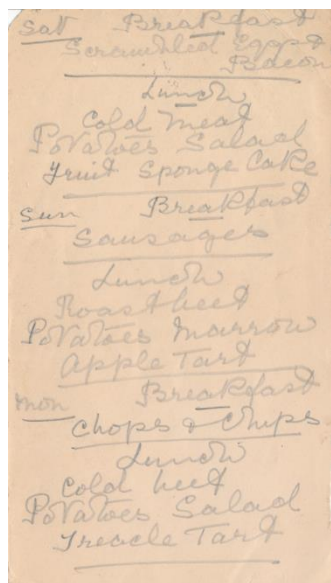 Sat Breakfast
Scrambled Eggs &
Bacon
Lunch
Cold Meat
Potatoes Salad
Fruit Sponge Cake
Sun Breakfast
Sausages
Lunch
Roast beef
Potatoes Marrow
Apple Tart
Mon Breakfast
Chops & Chips
Lunch
Cold beef
Potatoes Salad
Treacle Tart